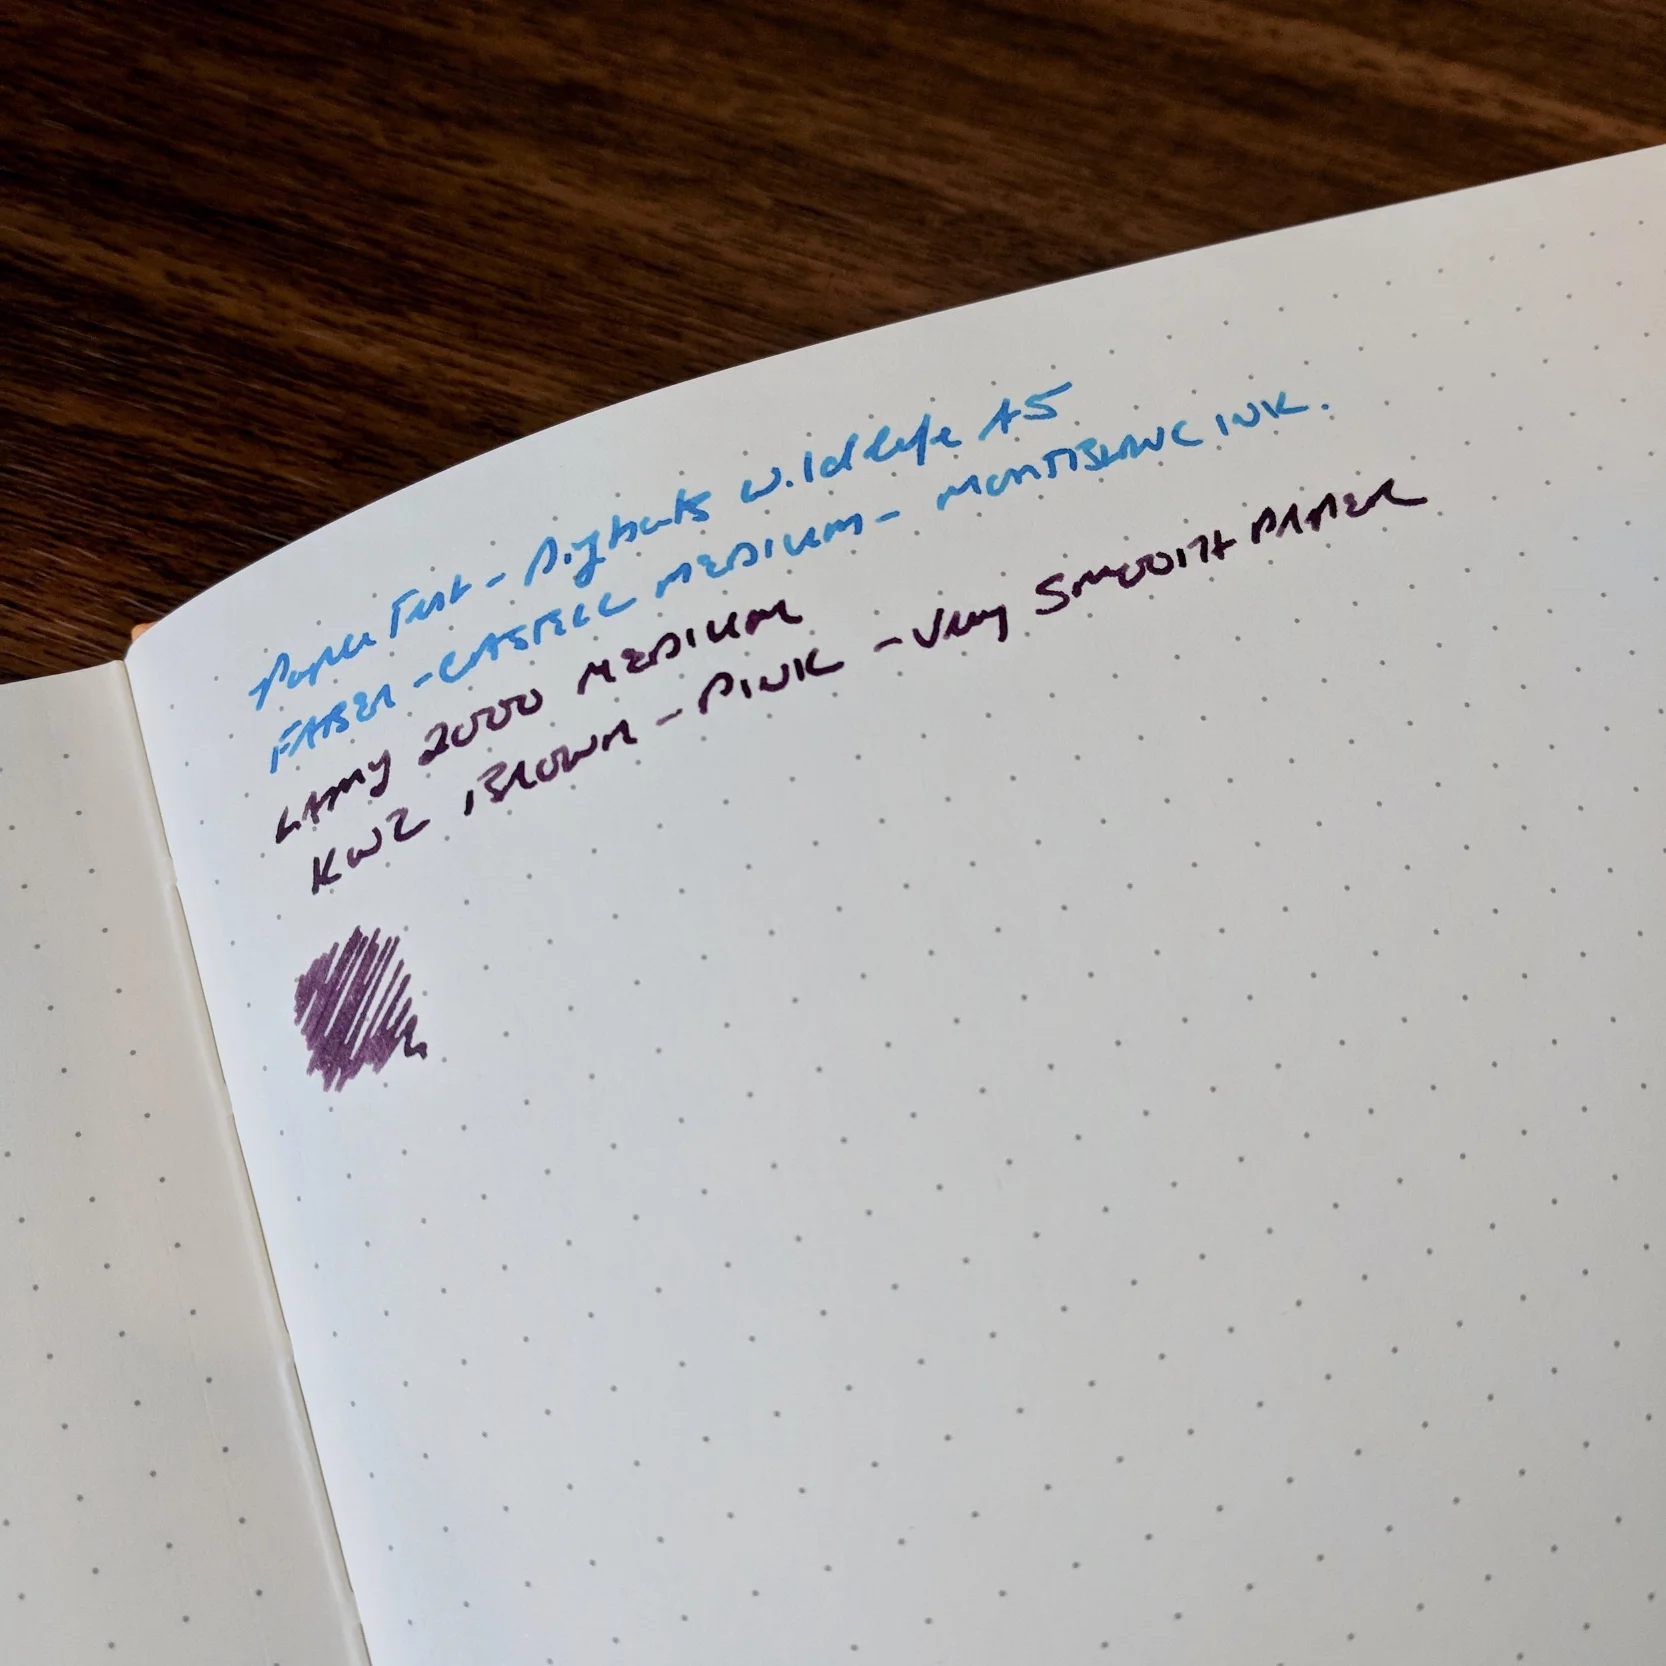 Paper Test - Dingbats Wildlife A5
FABER-CASTELL MEDIUM - MONTBLANC INK.
LAMY 2000 MEDIUM
KWZ BROWN-PINK - Very SMOOTH PAPER